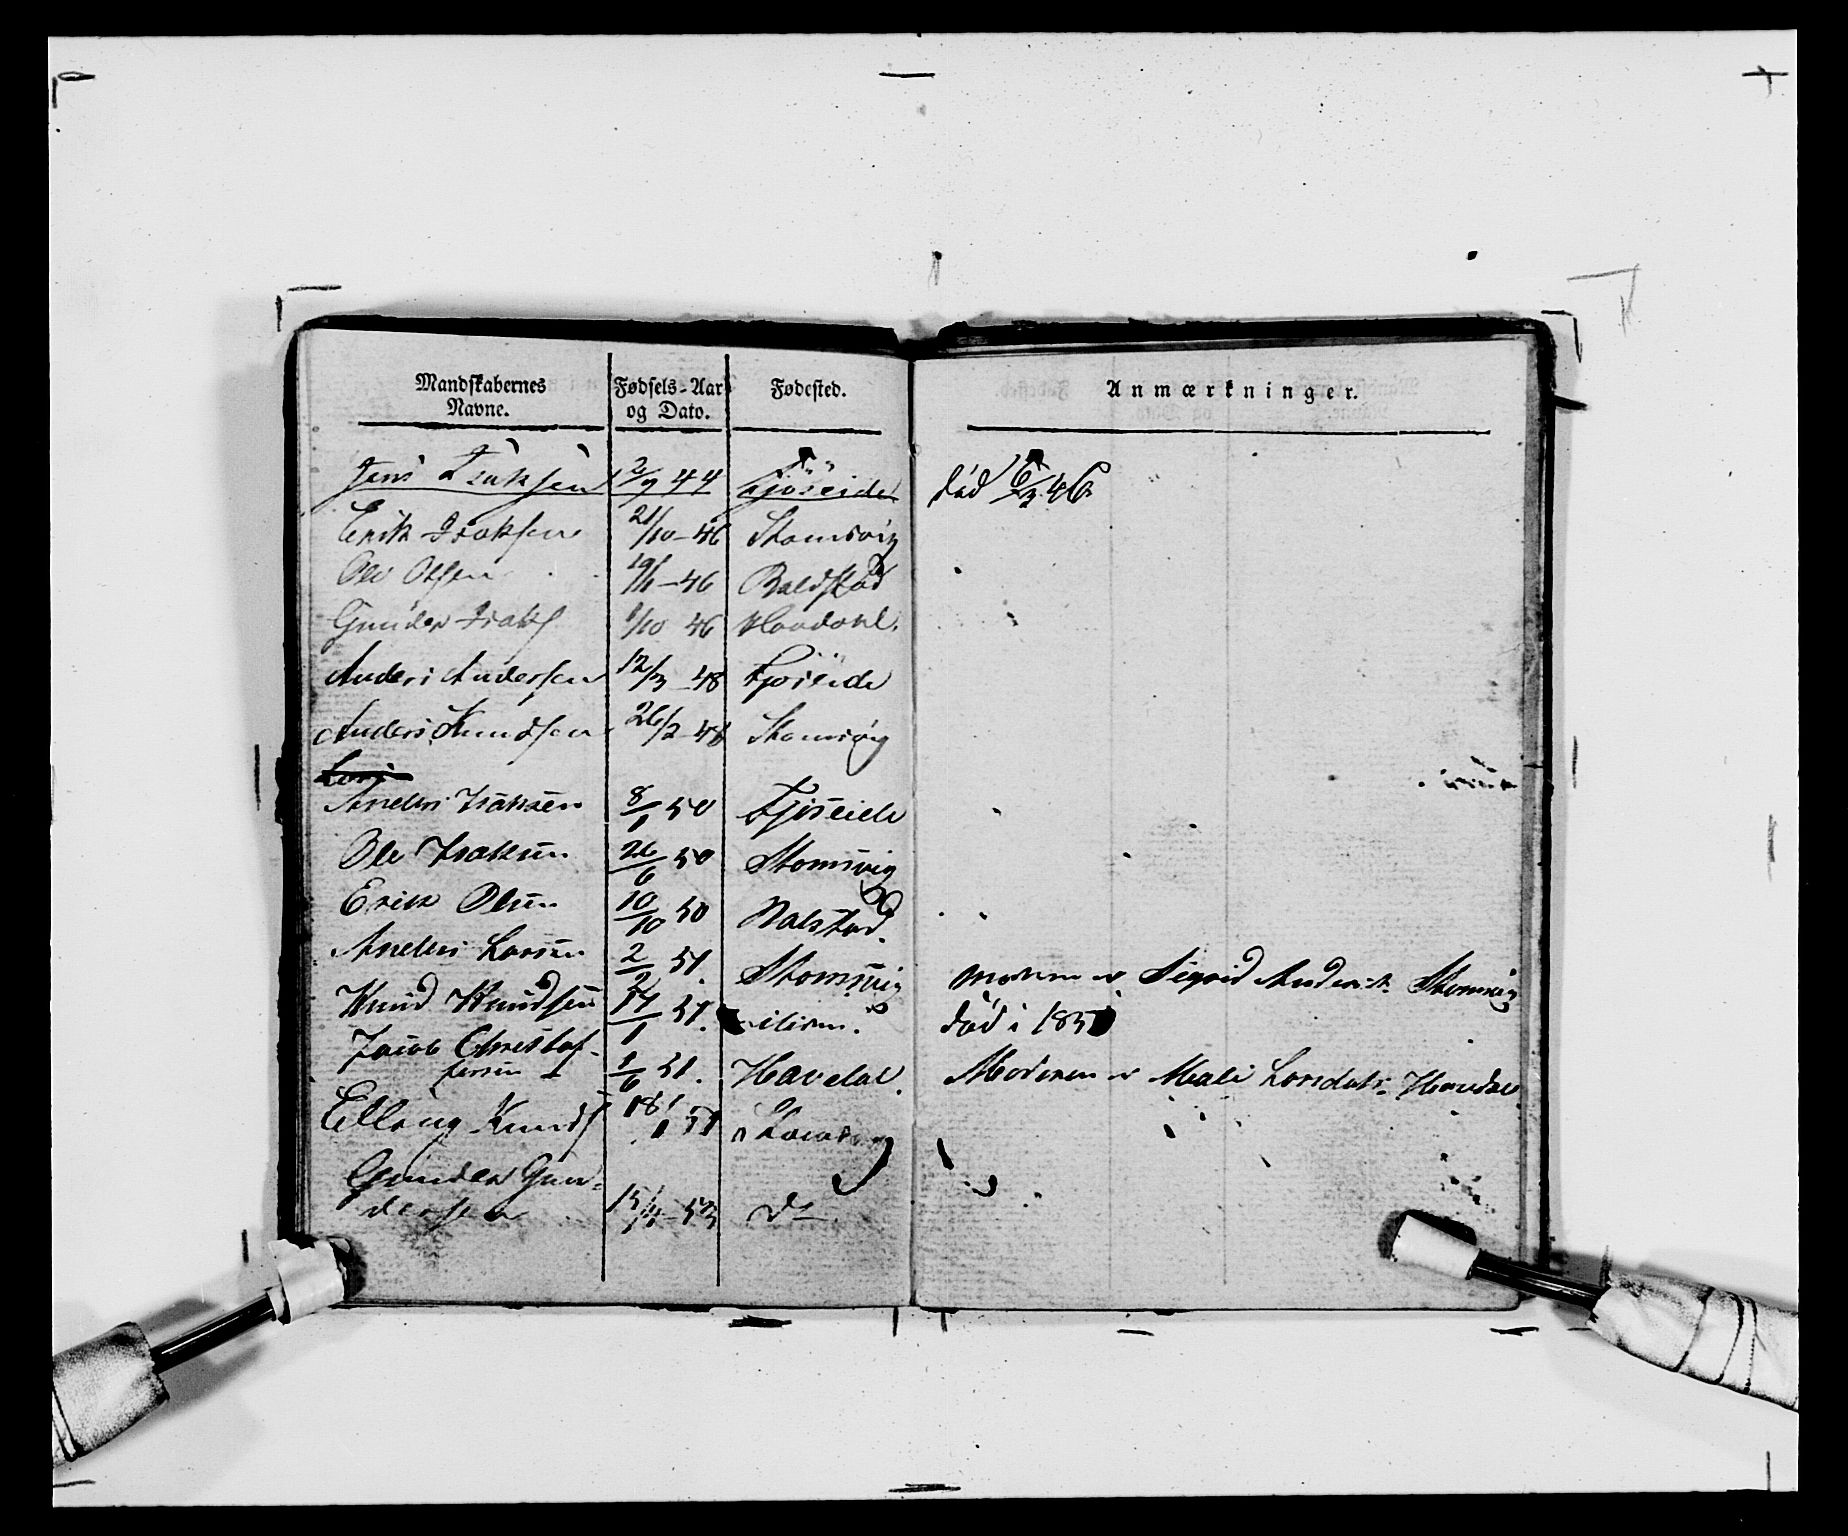 Mandskabernes Navne. Fødsels-Aar og Dato. Fødested. Anmærkninger.
Jens Isaksen 2/9 44 Fjøseide død 6/3 46
Erik Isaksen 21/10-46 Stomsvig
Ole Olsen 19/11-46 Baldstad
Gunder Isaks 1/10 46 Havdahl.
Anders Andersen 12/3-48 Fjøseide
Anders Knudsen 26/2-48 Stomsvig
Lars
Anders Isaksen 8/1 50 Fjøseide
Ole Isaksen 26/6 50 Stomsvig
Erik Olsen 10/10 50 Balstad.
Anders Larsen 2/2 51. Stomsvig moren er Sigrid Andersd. Stomsvig
Knud Knudsen 17/1 51. død i 185
Jacob Christof-
fersen 1/6 51. Havdal. Moderen er Mali Larsdatr. Havdal.
Elling Knuds 18/1 51
Gunder Gun-
dersen 15/4-53 do